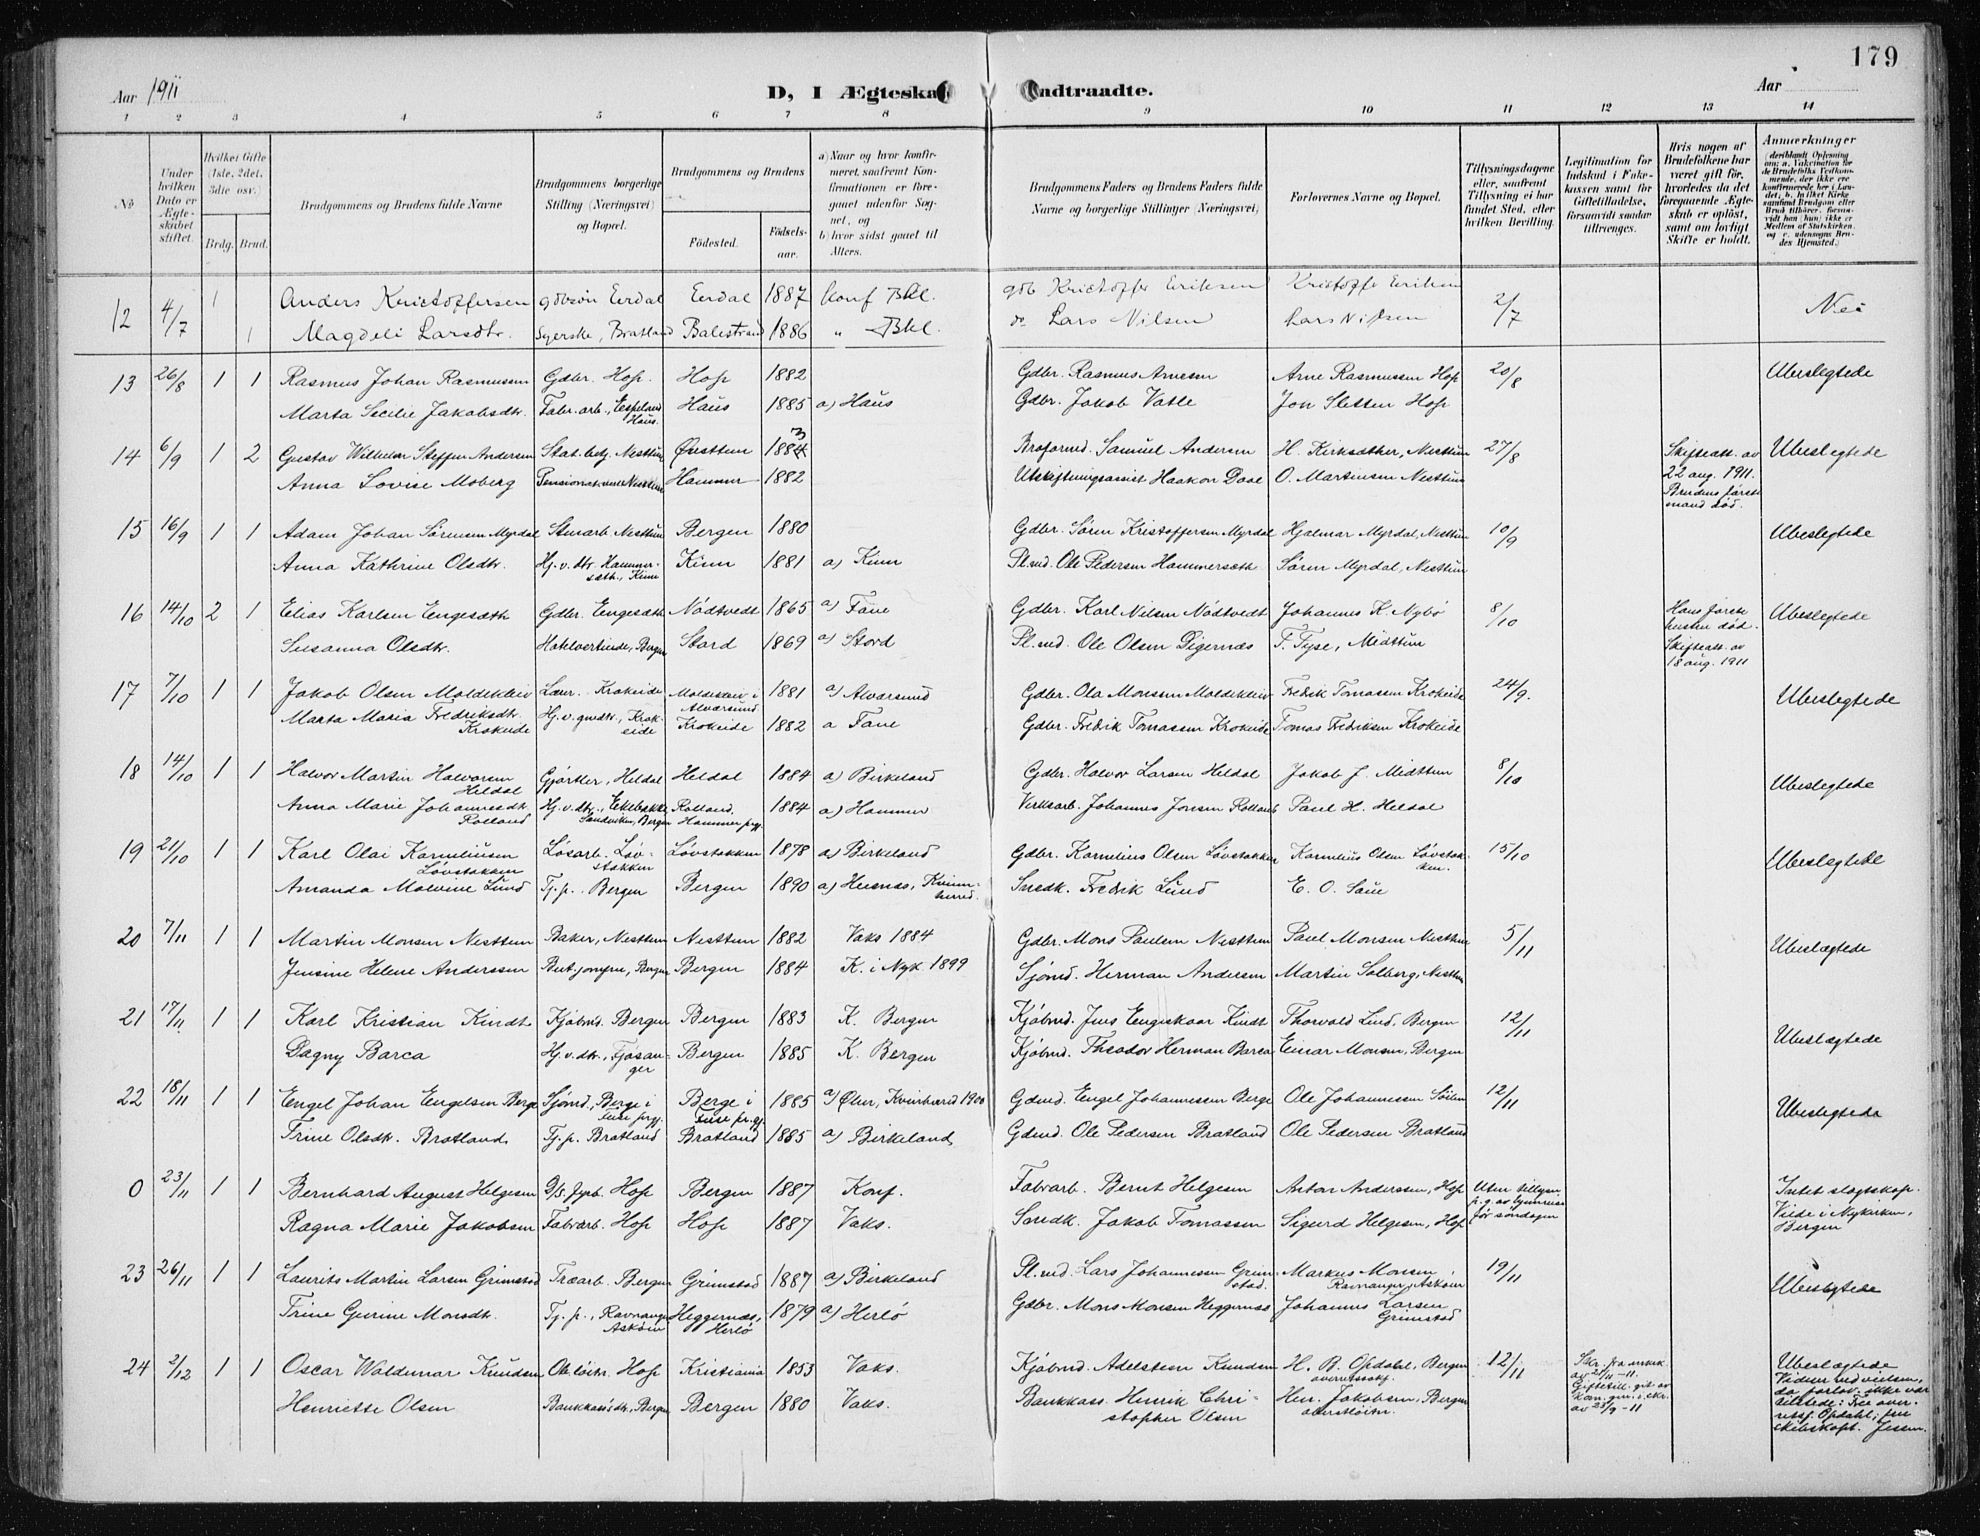 179
Aar 1911
D, I Ægteska
ndtraadte.
Aar
1 2 3 4 5 6 7 8 9 10 11 12 13 14
No
Under hvilken Dato er Ægteskabet stiftet.
Hvilket Gifte (1ste, 2det, 3die osv.)
Brdg. Brud.
Brudgommens og Brudens fulde Navne
Brudgommens borgerlige Stilling (Næringsvei) og Bopæl.
Brudgommens og Brudens
Fødested.
Fødselsaar.
a) Naar og hvor konfirmeret, saafremt Konfirmationen er foregaaet udenfor Sognet, og
b) hvor sidst gaaet til Alters.
Brudgommens Faders og Brudens Faders fulde Navne og borgerlige Stillinger (Næringsvei)
Forlovernes Navne og Bopæl.
Tillysningsdagene eller, saafremt Tillysning ei har fundet Sted, efter hvilken Bevilling.
Legitimation for Indskud i Enkekassen samt for Giftetilladelse, forsaavidt saadan tiltrænges.
Hvis nogen af Brudefolkene har været gift før, hvorledes da det foregaaende Ægteskab er opløst, samt om lovligt Skifte er holdt.
Anmærkninger
12 4/7 1 Anders Kristoffersen gdbsøn Eerdal Eerdal 1887 Konf Bkl. gdb Kristoffer Eriksen Kristoffer Eriksen 2/7 Nei
1 Magdeli Larsdtr. Syerske, Bratland Balestrand 1886 " Bkl. do Lars Nilsen Lars Nilsen
13 26/8 1 1 Rasmus Johan Rasmussen Gdbr. Hop. Hop 1882 Gdbr. Rasmus Arnesen Arne Rasmussen Hop 20/8 Ubeslegtede
Marta Secilie Jakobsdtr. Fabr.arb., Espeland Haus. Haus 1885 a) Haus Gdbr. Jakob Vatle Jon Sletten Hop
14 6/9 1 2 Gustav Wilhelm Steffen Andersen Stat.betj. Nesttun Øvsttun 1883 H. Kirksæther, Nesttun 27/8 Skifteatt. av 22 aug. 1911. Brudens første mand død. Ubeslegtede
Broformd. Samuel Andersen
Anna Lovise Moberg Nesttun Hammer 1882 Utskiftningsassist Haakon Daae O. Martinsen Nesttun
15 16/9 1 1 Adam Johan Sörensen Myrdal Stenarb. Nesttun Bergen 1880 Gdbr. Sören Kristoffersen Myrdal Hjalmar Myrdal, Nesttun 10/9 Ubeslegtede
Anna Kathrine Olsdtr. Hj.v.dtr. Hammersæth., Kinn Kinn 1881 a) Kinn Pl.md. Ole Pedersen Hammersæth Sören Myrdal, Nesttun
16 14/10 2 1 Elias Karlsen Engesæth Gdbr. Engesæth Nödtvedt 1865 a) Fane Gdbr. Karl Nilsen Nödtvedt Johannes K. Nybö 8/10 Hans første hustru død. Skifteatt. av 18 aug. 1911 Ubeslegtede
Susanna Olsdtr. Hotelvertinde, Bergen Stord 1869 a) Stord Pl.md. Ole Olsen Digernæs T. Tyse, Midttun
17 7/10 1 1 Jakob Olsen Moldekleiv Lær. Krokeide Moldekleiv i Alversund 1881 a) Alversund Gdbr. Ola Monsen Moldekleiv Fredrik Tomassen Krokeide 24/9. Ubeslegtede
Marta Maria Fredriksdtr. Krokeide Hj.v. grdtr., Krokeide Krokeide 1882 a Fane Gdbr. Fredrik Tomassen Krokeide Tomas Fredriksen Krokeide
18 14/10 1 1 Halvor Martin Halvorsen Heldal Gjørtler, Heldal Heldal 1884 a) Birkeland Gdbr. Halvor Larsen Heldal Jakob J. Midttun 8/10 Ubeslegtede
Anna Marie Johannesdtr. Rolland Hj.v.dtr., Ekebakke Sandviken, Bergen Rolland, Hammer prgj. 1884 a) Hammer Verksarb. Johannes Jonsen Rolland Paul H. Heldal
19 21/10 1 1 Karl Olai Korneliussen Løvstakken Løsarb. Løvstakken Løvstakken 1878 a) Birkeland Gdbr. Kornelius Olsen Løvstakken Kornelius Olsen Løvstakken. 15/10 Ubeslegtede
Amanda Malvine Lund Tj.p. Bergen Bergen 1890 a) Husnes, Kvinnherred. Snedk. Fredrik Lund E. O. Saue
20 7/11 1 1 Martin Monsen Nesttun Baker, Nesttun Nesttun 1882 Vaks 1884 Gdbr. Mons Paulsen Nesttun Paul Monsen Nesttun 5/11 Ubeslægtede
Jensine Helene Anderssen But.jomfru, Bergen Bergen 1884 K. i Nyk. 1899 Sjømd. Herman Andersen Martin Solberg, Nesttun
21 17/11 1 1 Karl Kristian Kindt Kjøbmd. Bergen Bergen 1883 K. Bergen Kjøbmd. Jens Engeskaar Kindt Thorvald Lind, Bergen 12/11 Ubeslægtede
Dagny Barca Hj.v.dtr., Fjøsanger Bergen 1885 K. Bergen Kjøbmd. Theodor Herman Barca Einar Monsen, Bergen
22 18/11 1 1 Engel Johan Engelsen Berge Sjømd., Berge i Fuse prgj. Berge i Fuse pr.gj. 1885 a) Ølve, Kvinherred 1900 Gdmd. Engel Johannessen Berge Ole Johannessen 12/11 Ubeslegtede
Trine Olsdtr. Bratland Tj.p. Bratland Bratland 1885 a) Birkeland Gdmd. Ole Pedersen Bratland Ole Pedersen Bratland
0 23/11 1 1 Bernhard August Helgesen Hop Bergen 1887 Konf. Fabrarb. Bernt Helgesen Anton Anderssen, Hop Uten tillysn. p.g.av lysn. før søndagen Intet slægtskap. Viede i Nykirken, Bergen
Ragna Marie Jakobsen Fabrarb. Hop Hop 1887 Vaks. Snedk. Jakob Tomassen Sigurd Helgesen, Hop
23 26/11 1 1 Laurits Martin Larsen Grimstad Træarb. Bergen Grimstad 1887 a) Birkeland Pl.md. Lars Johannessen Grimstad. Markus Monsen Ravnanger, Askøen 19/11 Ubeslegtede
Trine Gurine Monsdtr. Tj.p., Ravnanger Askøen Heggernæs, Herlö 1879 a) Herlö Gdbr. Mons Monsen Heggernes Johannes Larsen Grimstad
24 2/12 1 1 Oscar Waldemar Knudsen Obløitn. Hop Kristiania 1853 Vaks. Kjøbmd. Adelsteen Knudsen H. B. Opdahl, Bergen overretssakf. 12/11 Skr. fra enkek. av 21/11-11. Giftetill. git av kom.gen. i skr. av 23/9-11 Ubeslægtede Vidner ved vielsen, da forlov. ikke var tilstede: Fru overretssf. Opdahl, fru skibskapt. Jessen.
Henriette Olsen Bankkass.dtr., Bergen Bergen 1880 Vaks. Bankkass. Henrik Christopher Olsen Her. Jakobsen, Bergen oberstløitn.